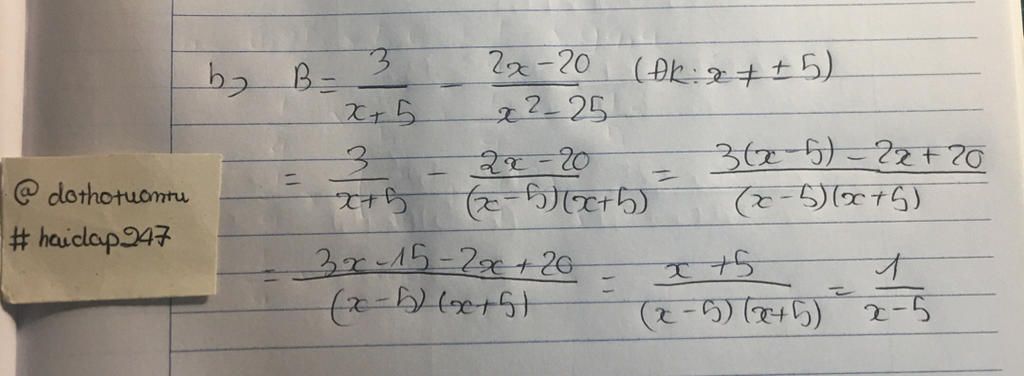 b, B = 3/(x+5) - (2x-20)/(x²-25) (ĐK: x ≠ ±5)
= 3/(x+5) - (2x-20)/((x-5)(x+5)) = (3(x-5)-2x+20)/((x-5)(x+5))
= (3x-15-2x+20)/((x-5)(x+5)) = (x+5)/((x-5)(x+5)) = 1/(x-5)
@ dothotuantu
# hoidap247